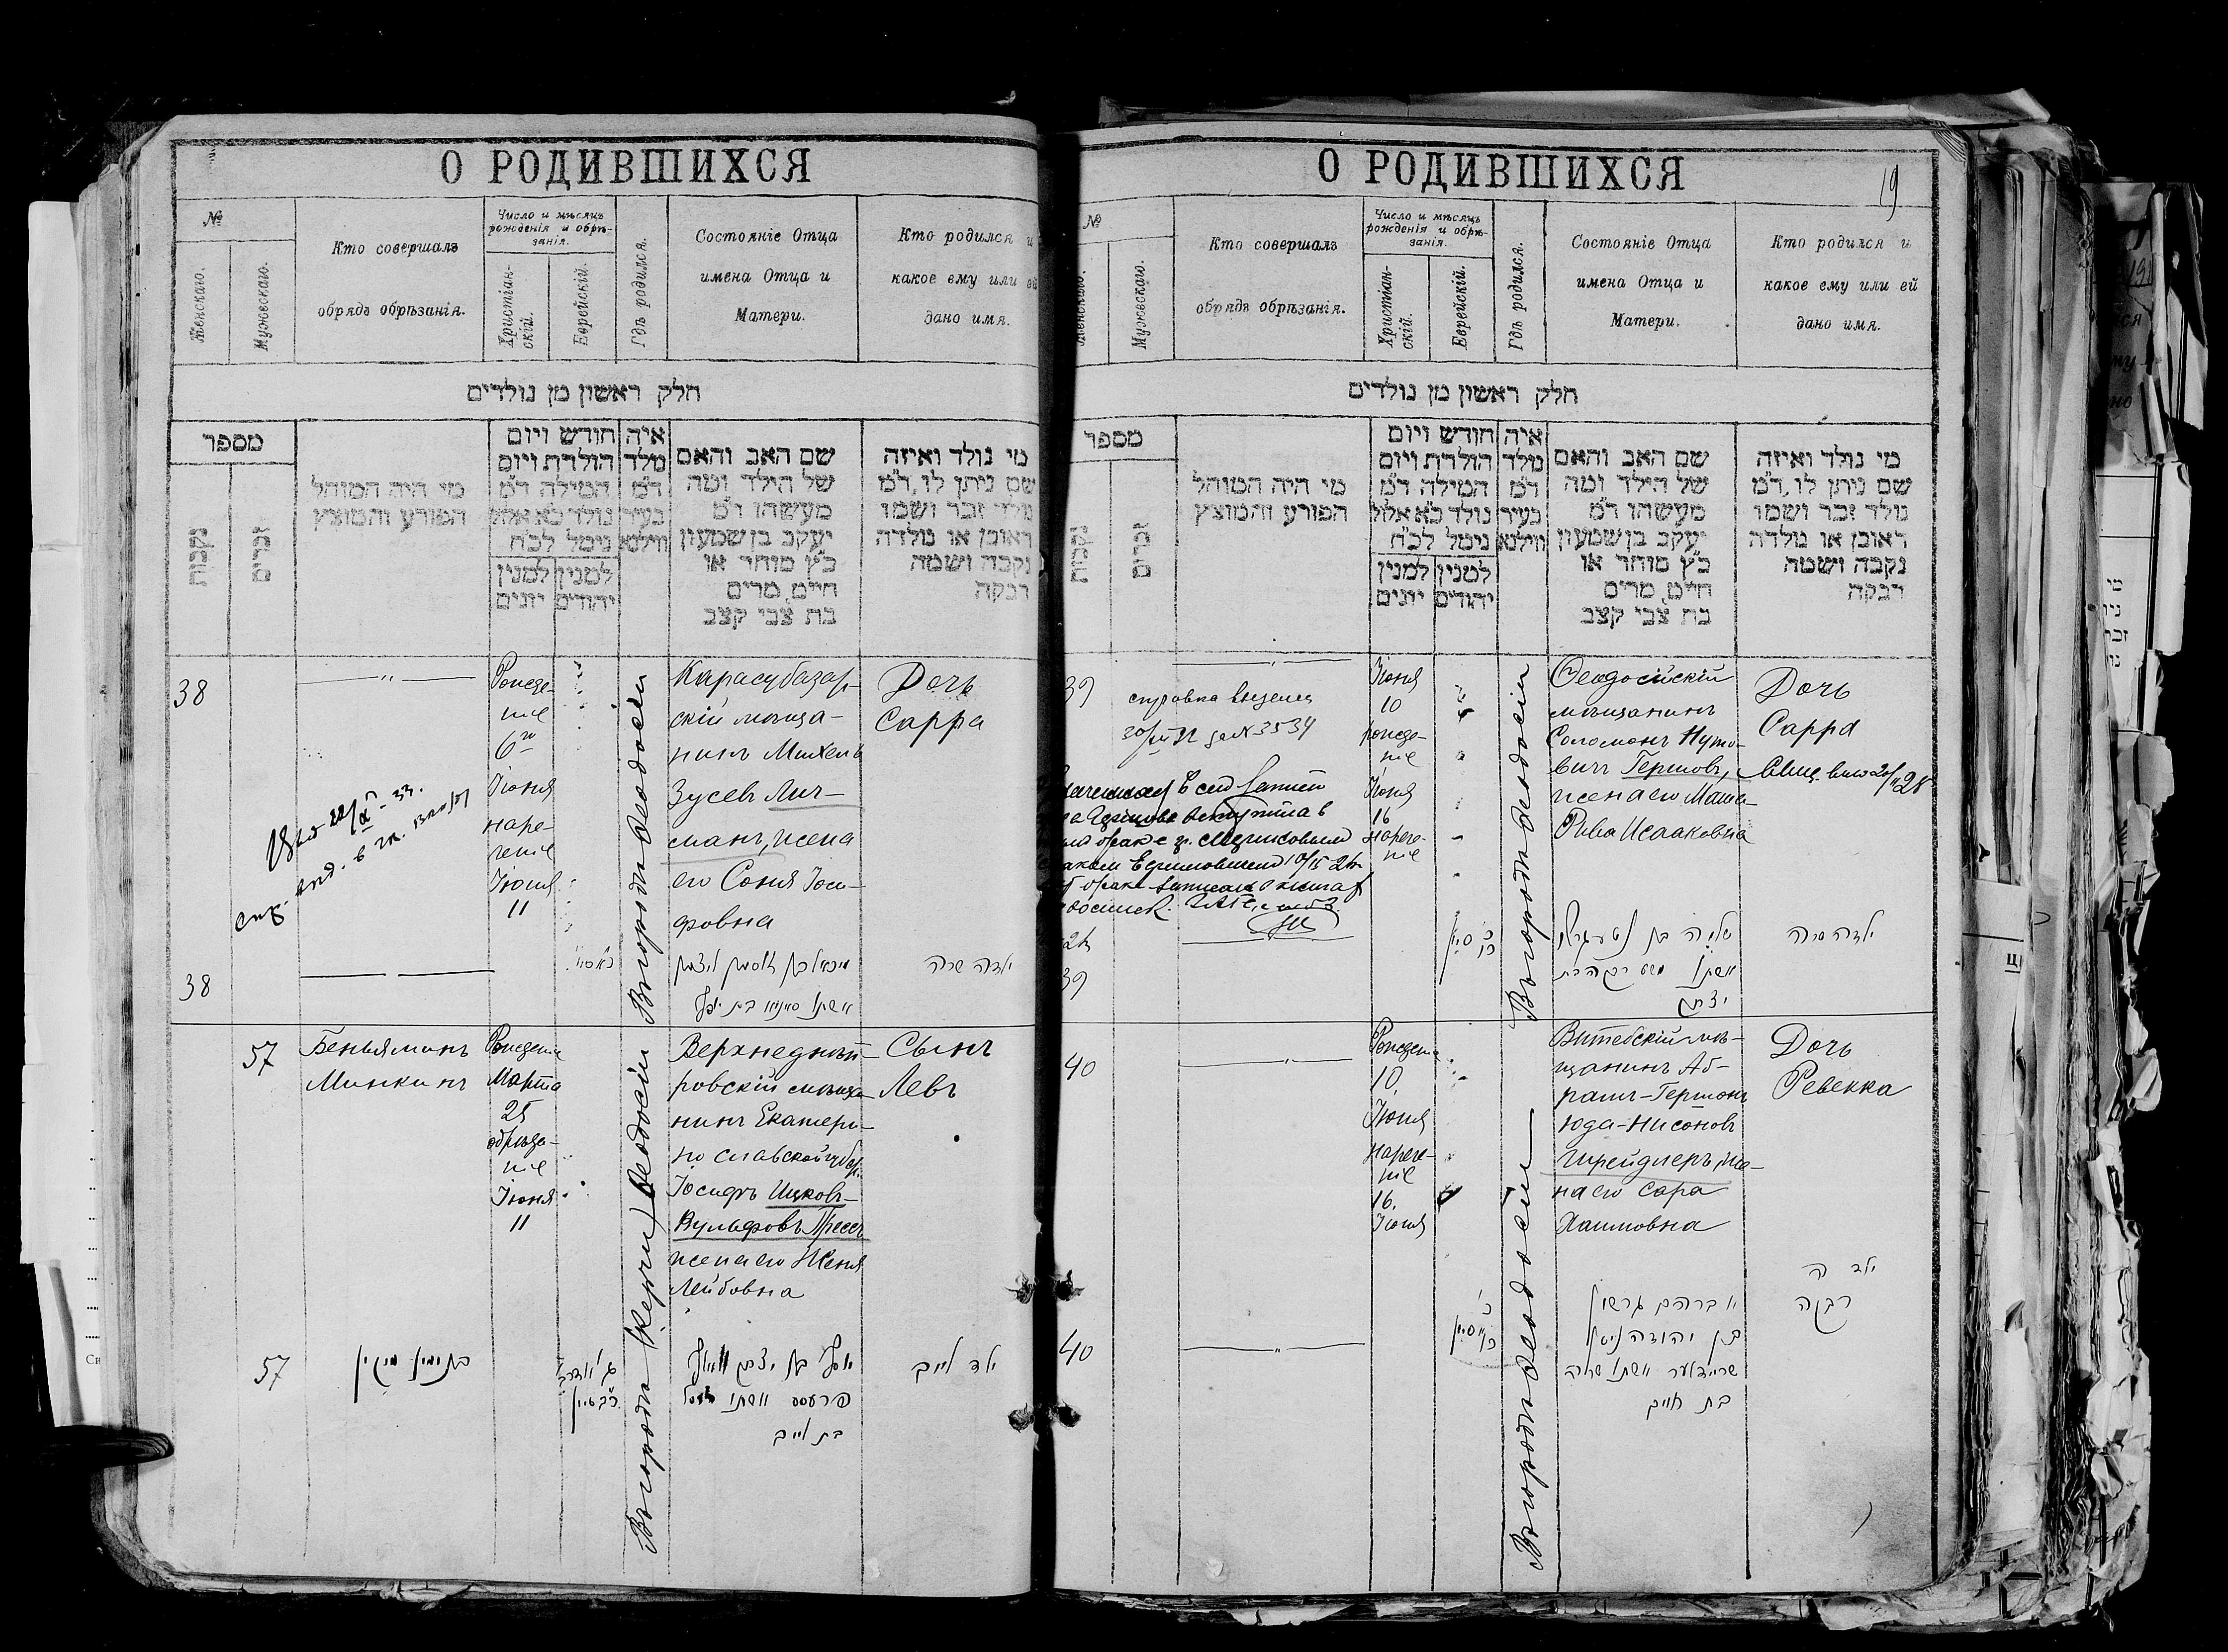 О РОДИВШИХСЯ
№
Женскаго.
Мужескаго.
Кто совершалъ
обрядъ обрѣзанія.
Число и мѣсяцъ
рожденія и обрѣ-
занія.
Христіан-
скій.
Еврейскій.
Гдѣ родился.
Состояніе Отца
имена Отца и
Матери.
Кто родился и
какое ему или ей
дано имя.
חלק ראשון מן נולדים
מספר
נקבות
זכרים
מי היה המוהל
הפורע והמוצץ
חודש ויום
הולדת ויום
המילה ד״מ
נולד כ״א אלול
נימל לכ״ח
למנין למנין
יהודים יונים
איה
נולד
ד״מ
בעיר
ווילנא
שם האב והאם
של הילד ומה
מעשהו ד״מ
יעקב בן שמעון
כ״ץ סוחר או
חייט, מרים
בת צבי קצב
מי נולד ואיזה
שם ניתן לו, ד״מ
נולד זכר ושמו
ראובן או נולדה
נקבה ושמה
רבקה
38
Рожде-
ніе
6го
Іюня
наре-
ченіе
Іюня
11
Въ городѣ Ѳеодосіи
Карасубазар-
скій мѣща-
нинъ Михель
Зусевъ Лич-
манъ, жена
его Соня Іоси-
фовна
Дочь
Сарра
38
ילדה שרה
57
Беньяминъ
Минкинъ
Рожденіе
Марта
25
обрѣза-
ніе
Іюня
11
Въ городѣ (Керчи) Ѳеодосіи
Верхнеднѣп-
ровскій мѣща-
нинъ Екатери-
нославской губер.
Іосифъ Ицковъ-
Вульфовъ Пресъ
жена его Женя
Лейбовна
Сынъ
Левъ
57
בנימין מינקין
ילד לייב
בת לייב
О РОДИВШИХСЯ
19
№
Женскаго.
Мужескаго.
Кто совершалъ
обрядъ обрѣзанія.
Число и мѣсяцъ
рожденія и обрѣ-
занія.
Христіан-
скій.
Еврейскій.
Гдѣ родился.
Состояніе Отца
имена Отца и
Матери.
Кто родился и
какое ему или ей
дано имя.
חלק ראשון מן נולדים
מספר
נקבות
זכרים
מי היה המוהל
הפורע והמוצץ
חודש ויום
הולדת ויום
המילה ד״מ
נולד כ״א אלול
נימל לכ״ח
למנין למנין
יהודים יונים
איה
נולד
ד״מ
בעיר
ווילנא
שם האב והאם
של הילד ומה
מעשהו ד״מ
יעקב בן שמעון
כ״ץ סוחר או
חייט, מרים
בת צבי קצב
מי נולד ואיזה
שם ניתן לו, ד״מ
נולד זכר ושמו
ראובן או נולדה
נקבה ושמה
רבקה
39
справка выдана
за № 3534
Іюня
10
рожде-
ніе
Іюня
16
нарече-
ніе
Въ городѣ Ѳеодосіи
Ѳеодосійскій
мѣщанинъ
Соломонъ Нуто-
вичъ Гершовъ,
жена его Маша-
Рива Исааковна
Дочь
Сарра
39
ילדה שרה
40
Рожденіе
10
Іюня
нарече-
ніе
16.
Іюня
Въ городѣ Ѳеодосіи
Витебскій мѣ-
щанинъ Аб-
рамъ-Гершонъ
Юда-Нисоновъ
Шрейдлеръ, же-
на его Сара
Хаимовна
Дочь
Ревекка
40
אברהם גרשון
בן יהודה ניסן
שריידלער ואשתו שרה
בת חיים
ילדה
רבקה